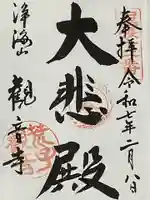 奉拝 令和七年二月八日
大悲殿
浄海山 観音寺